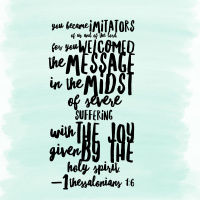 you became iMiTATORS
of us and of the lord
for you WELCOMED
the MESSAGE
in the MiDST
of severe
SUFFERING
with THE JOY
given BY THE
holy spirit.
—1 thessalonians 1:6